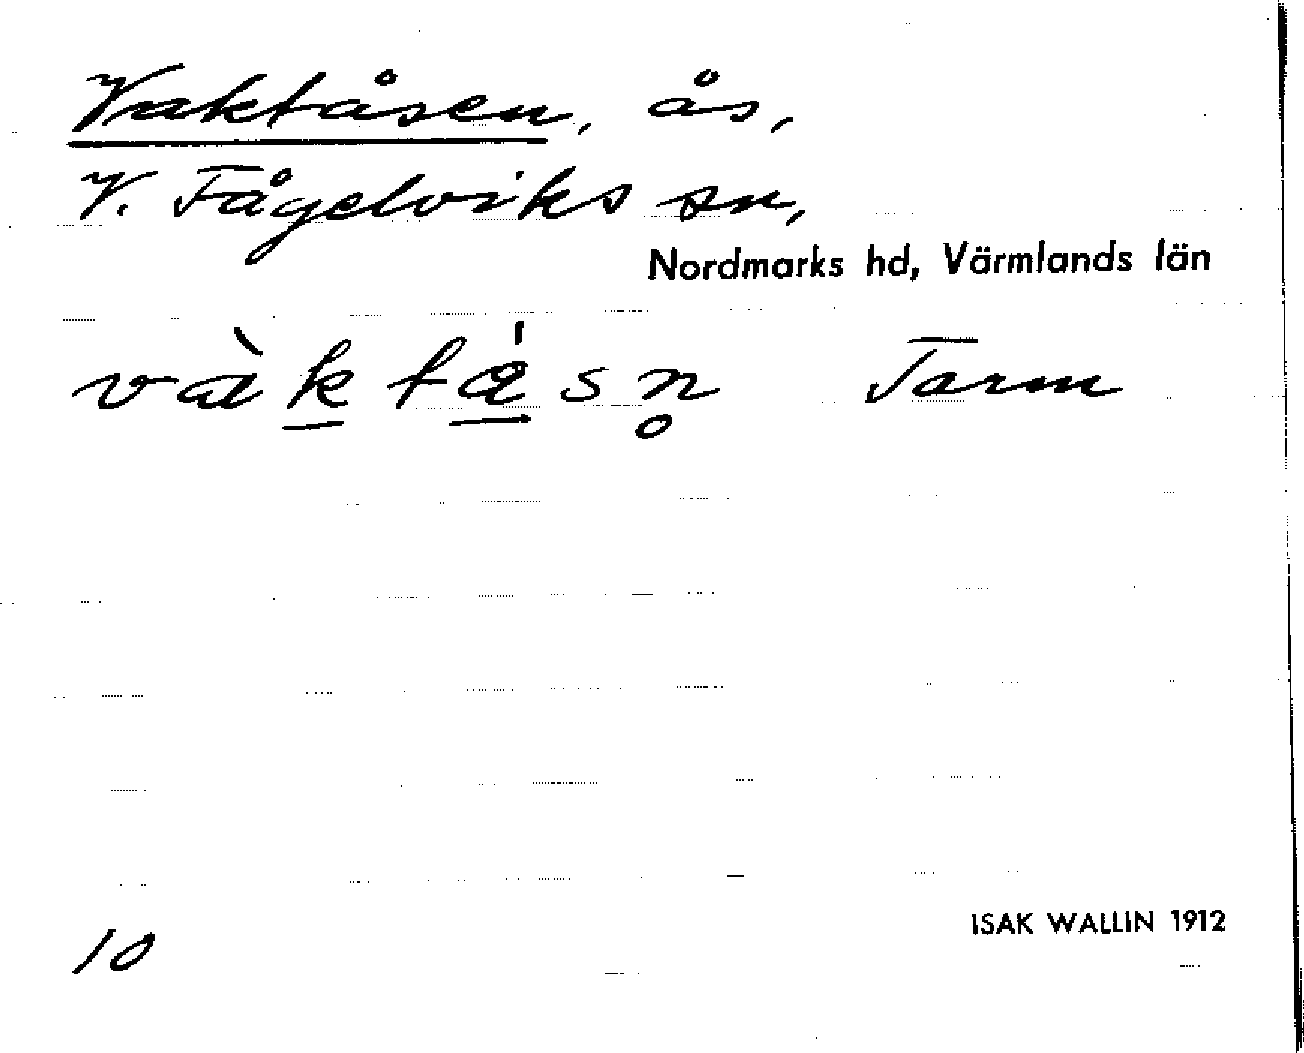 Vaktåsen, ås,
V. Fågelviks sn,
Nordmarks hd, Värmlands län
vàk̲tá̲sn̥ Tarm
10
ISAK WALLIN 1912